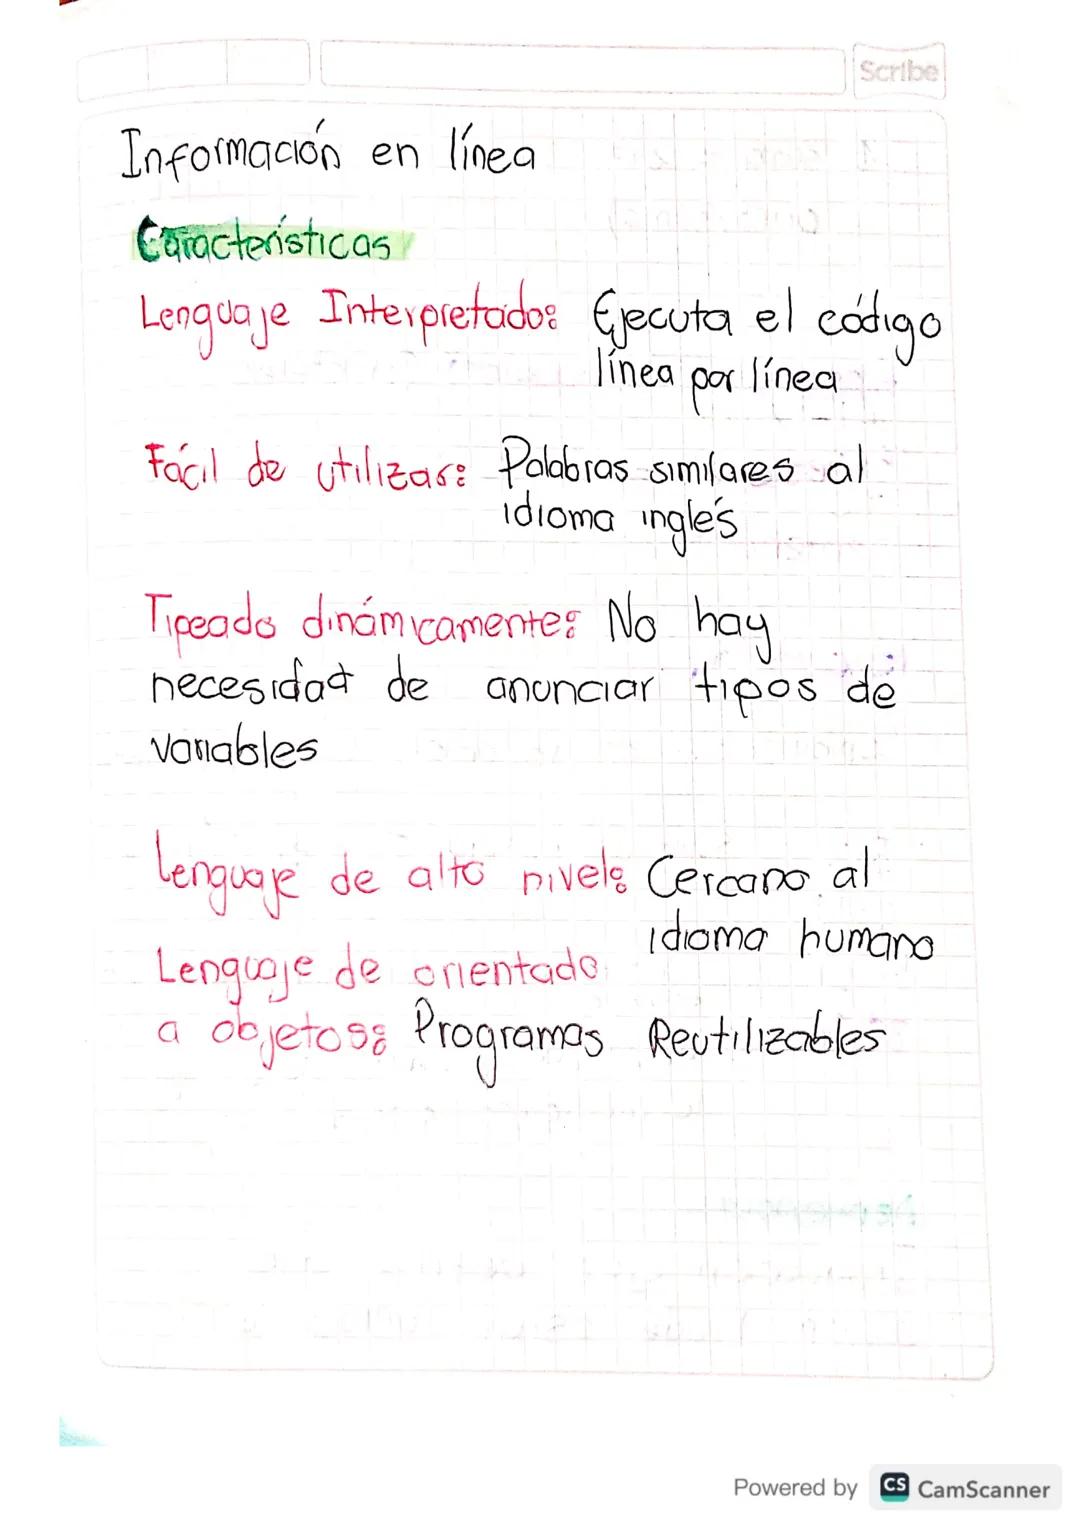 Scribe
Información en línea
Características
Lenguaje Interpretado: Ejecuta el código
línea por línea
Fácil de utilizar: Palabras similares al
idioma inglés
Tipeado dinámicamente: No hay
necesidad de anunciar tipos de
variables
Lenguaje de alto nivel: Cercano al
idioma humano
Lenguaje de orientado
a objetos: Programas Reutilizables
Powered by CS CamScanner